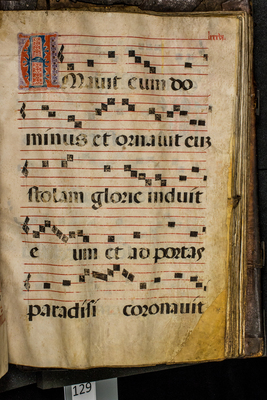 AMavit eum do
minus et ornavit eum
stolam glorie induit
e um et ad portas
paradisi coronavit
129